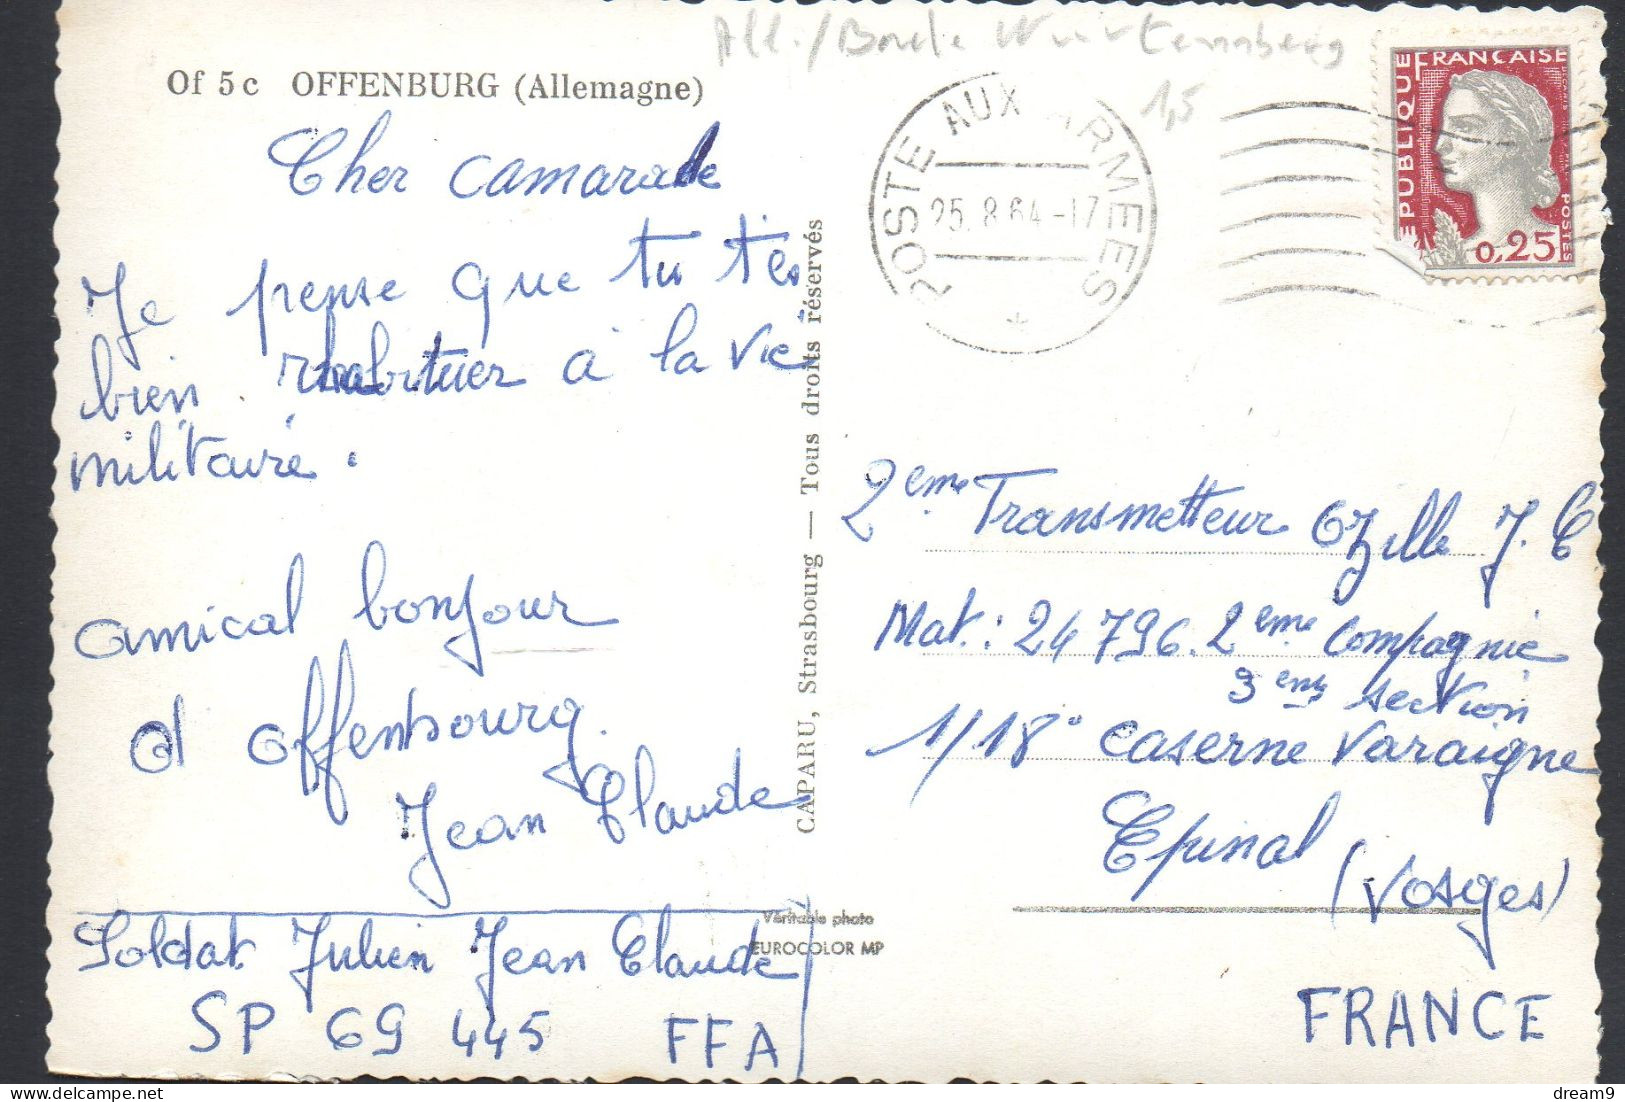 All./Bade Wurtemberg
1,5
Of 5 c OFFENBURG (Allemagne)
Cher camarade
Je pense que tu t'es
bien rhabituer à la vie
militaire.
amical bonjour
d'Offenbourg.
Jean Claude
Soldat Julien Jean Claude
SP 69 445 FFA
CAPARU, Strasbourg — Tous droits réservés
Véritable photo
EUROCOLOR MP
POSTE AUX ARMEES
25.8.64-17
*
REPUBLIQUE FRANÇAISE
0,25
POSTES
2eme Transmetteur Ozille J.C
Mat: 24 796. 2eme Compagnie
3eme section
1/18° caserne Varaigne
Epinal
(Vosges)
FRANCE
delcampe.net
dream9